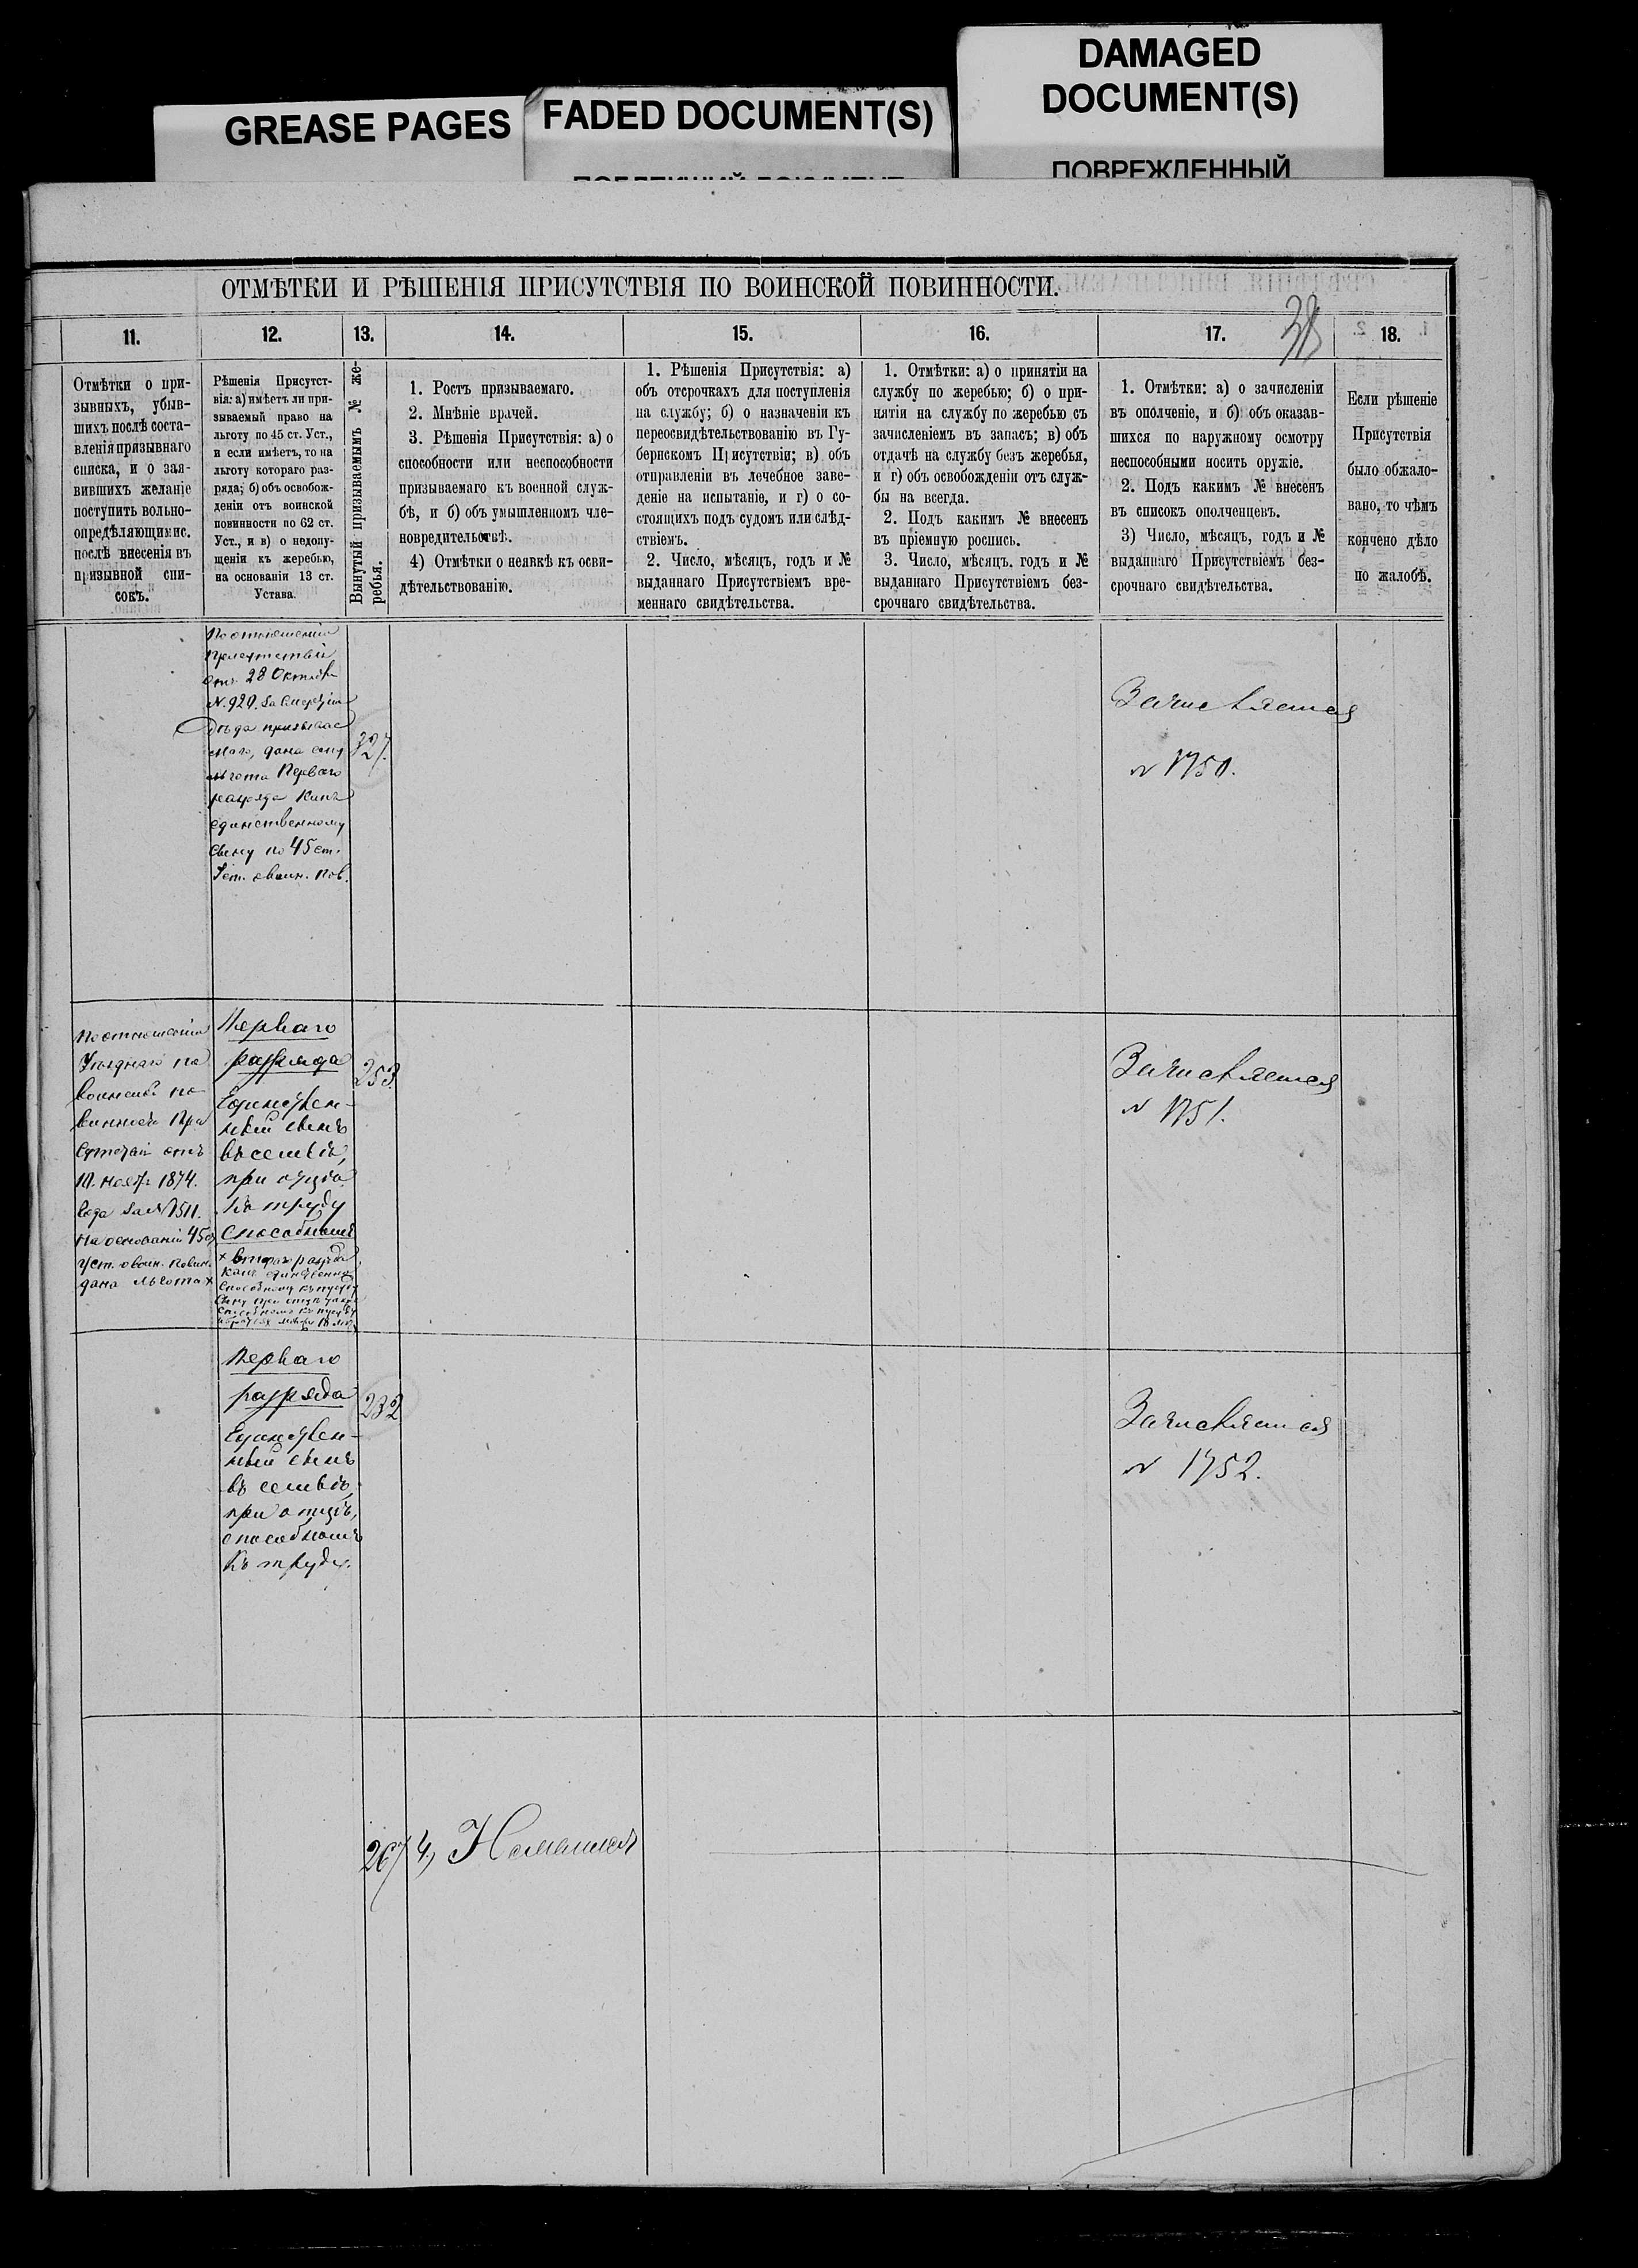 GREASE PAGES
FADED DOCUMENT(S)
DAMAGED
DOCUMENT(S)
ПОВРЕЖДЕННЫЙ
ОТМѢТКИ И РѢШЕНІЯ ПРИСУТСТВІЯ ПО ВОИНСКОЙ ПОВИННОСТИ.
38
11.
Отмѣтки о при-
зывныхъ, убыв-
шихъ послѣ соста-
вленія призывнаго
списка, и о зая-
вившихъ желаніе
поступить вольно-
опредѣляющимис.
послѣ внесенія въ
призывной спи-
сокъ.
12.
Рѣшенія Присутст-
вія: а) имѣетъ ли при-
зываемый право на
льготу по 45 ст. Уст.,
и если имѣетъ, то на
льготу котораго раз-
ряда; б) объ освобож-
деніи отъ воинской
повинности по 62 ст.
Уст., и в) о недопу-
щеніи къ жеребью,
на основаніи 13 ст.
Устава.
13.
Вынутый призываемымъ № же-
ребья.
14.
1. Ростъ призываемаго.
2. Мнѣніе врачей.
3. Рѣшенія Присутствія: а) о
способности или неспособности
призываемаго къ военной служ-
бѣ, и б) объ умышленномъ чле-
новредительствѣ.
4) Отмѣтки о неявкѣ къ осви-
дѣтельствованію.
15.
1. Рѣшенія Присутствія: а)
объ отсрочкахъ для поступленія
на службу; б) о назначеніи къ
переосвидѣтельствованію въ Гу-
бернскомъ Присутствіи; в) объ
отправленіи въ лечебное заве-
деніе на испытаніе, и г) о со-
стоящихъ подъ судомъ или слѣд-
ствіемъ.
2. Число, мѣсяцъ, годъ и №
выданнаго Присутствіемъ вре-
меннаго свидѣтельства.
16.
1. Отмѣтки: а) о принятіи на
службу по жеребью; б) о при-
нятіи на службу по жеребью съ
зачисленіемъ въ запасъ; в) объ
отдачѣ на службу безъ жеребья,
и г) объ освобожденіи отъ служ-
бы на всегда.
2. Подъ какимъ № внесенъ
въ пріемную роспись.
3. Число, мѣсяцъ. годъ и №
выданнаго Присутствіемъ без-
срочнаго свидѣтельства.
17.
1. Отмѣтки: а) о зачисленіи
въ ополченіе, и б) объ оказав-
шихся по наружному осмотру
неспособными носить оружіе.
2. Подъ какимъ № внесенъ
въ списокъ ополченцевъ.
3) Число, мѣсяцъ, годъ и №
выданнаго Присутствіемъ без-
срочнаго свидѣтельства.
18.
Если рѣшеніе
Присутствія
было обжало-
вано, то чѣмъ
кончено дѣло
по жалобѣ.
По отношенію
отъ 28 Октября
№ 929. За смертію
Дѣда призывае
маго, дана ему
льгота Перваго
разряда Какъ
единственному
сыну по 45 ст.
Уст. о воин. пов.
327.
Зачисляется
№ 1750.
По отношенію
Уѣзднаго по
воинской по-
винности При
сутствія отъ
года за № 1511.
На основаніи 45 ст
уст. о воин. повин.
дана льгота х
Перваго
разряда
Единствен-
ный сынъ
въ семьѣ,
при отцѣ
къ труду
способномъ
х втораго разряда
какъ единственно
способному къ труду
сыну при отцѣ также
способномъ къ труду
253
Зачисляется
№ 1751.
Перваго
разряда
Единствен-
ный сынъ
въ семьѣ,
при отцѣ,
способномъ
къ труду.
232
Зачисляется
№ 1752.
267
4, Неявился